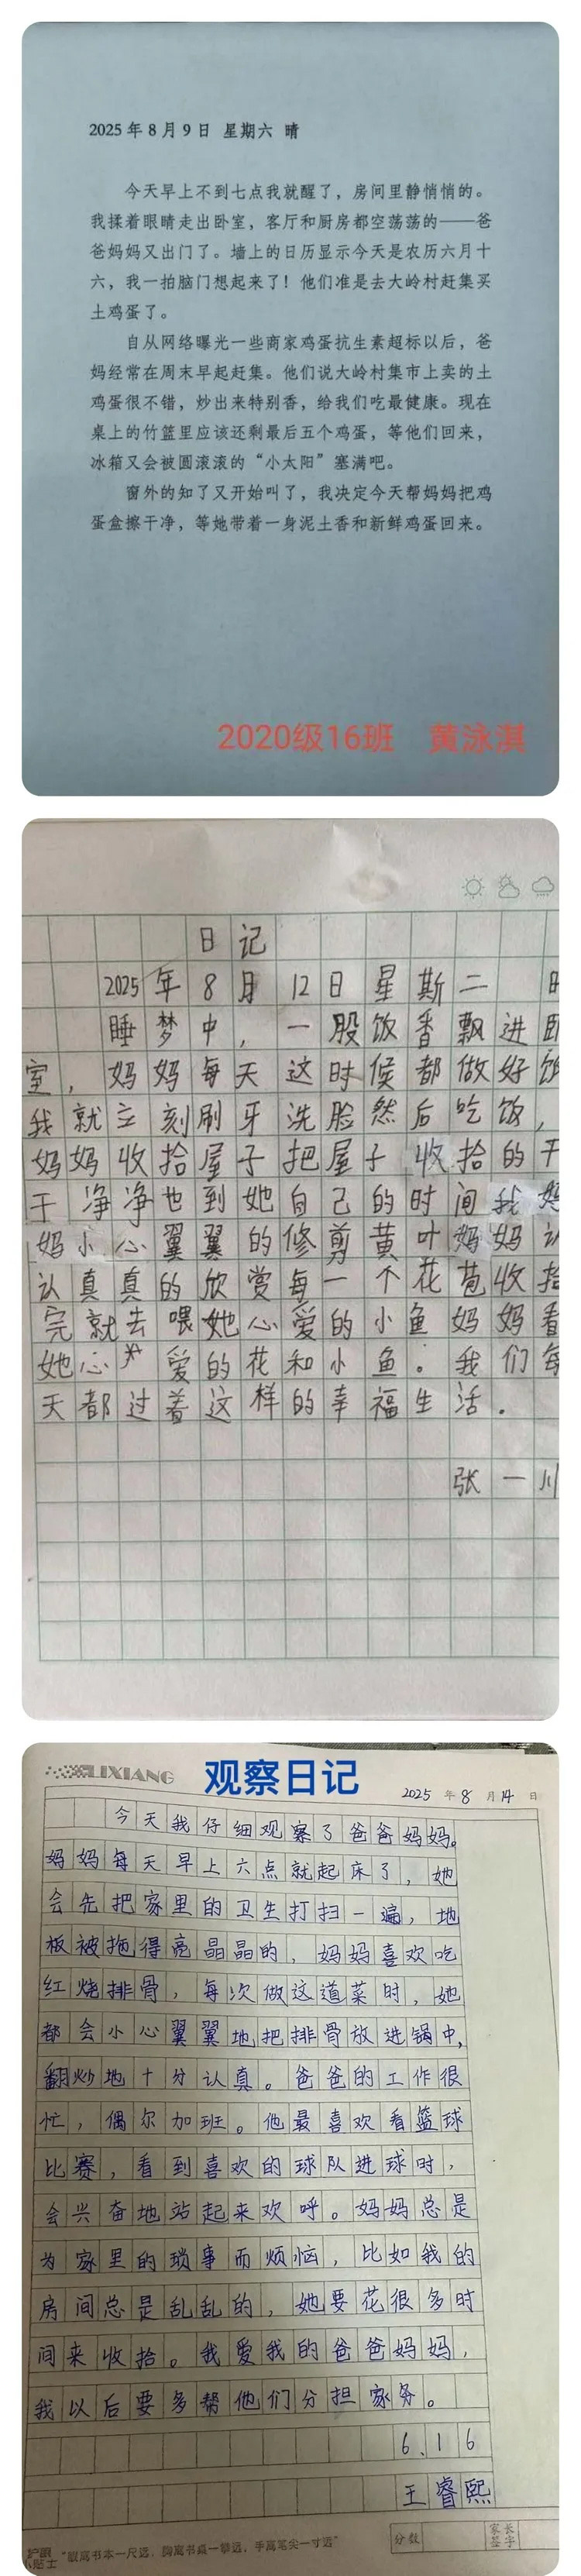 2025年8月9日 星期六 晴
今天早上不到七点我就醒了，房间里静悄悄的。
我揉着眼睛走出卧室，客厅和厨房都空荡荡的——爸
爸妈妈又出门了。墙上的日历显示今天是农历六月十
六，我一拍脑门想起来了！他们准是去大岭村赶集买
土鸡蛋了。
自从网络曝光一些商家鸡蛋抗生素超标以后，爸
妈经常在周末早起赶集。他们说大岭村集市上卖的土
鸡蛋很不错，炒出来特别香，给我们吃最健康。现在
桌上的竹篮里应该还剩最后五个鸡蛋，等他们回来，
冰箱又会被圆滚滚的“小太阳”塞满吧。
窗外的知了又开始叫了，我决定今天帮妈妈把鸡
蛋盒擦干净，等她带着一身泥土香和新鲜鸡蛋回来。
2020级16班 黄泳淇
日记
2025年8月12日星斯二
睡梦中，一股饭香飘进卧
室，妈妈每天这时候都做好饭
我就立刻刷牙洗脸然后吃饭，
妈妈收拾屋子把屋子收拾的干
干净净也到她自己的时间我妈
妈小心翼翼的修剪黄叶妈妈认
认真真的欣赏每一个花苞收拾
完就去喂她心爱的小鱼妈妈看
她心爱的花和小鱼。我们每
天都过着这样的幸福生活.
张一川
LIXIANG 观察日记 2025年8月14日
今天我仔细观察了爸爸妈妈。
妈妈每天早上六点就起床了，她
会先把家里的卫生打扫一遍，地
板被拖得亮晶晶的，妈妈喜欢吃
红烧排骨，每次做这道菜时，她
都会小心翼翼地把排骨放进锅中，
翻炒地十分认真。爸爸的工作很
忙，偶尔加班。他最喜欢看篮球
比赛，看到喜欢的球队进球时，
会兴奋地站起来欢呼。妈妈总是
为家里的琐事而烦恼，比如我的
房间总是乱乱的，她要花很多时
间来收拾。我爱我的爸爸妈妈，
我以后要多帮他们分担家务。
6.16
王睿熙
护眼小贴士 “眼离书本一尺远，胸离书桌一拳远，手离笔尖一寸远” 分数 家长签字